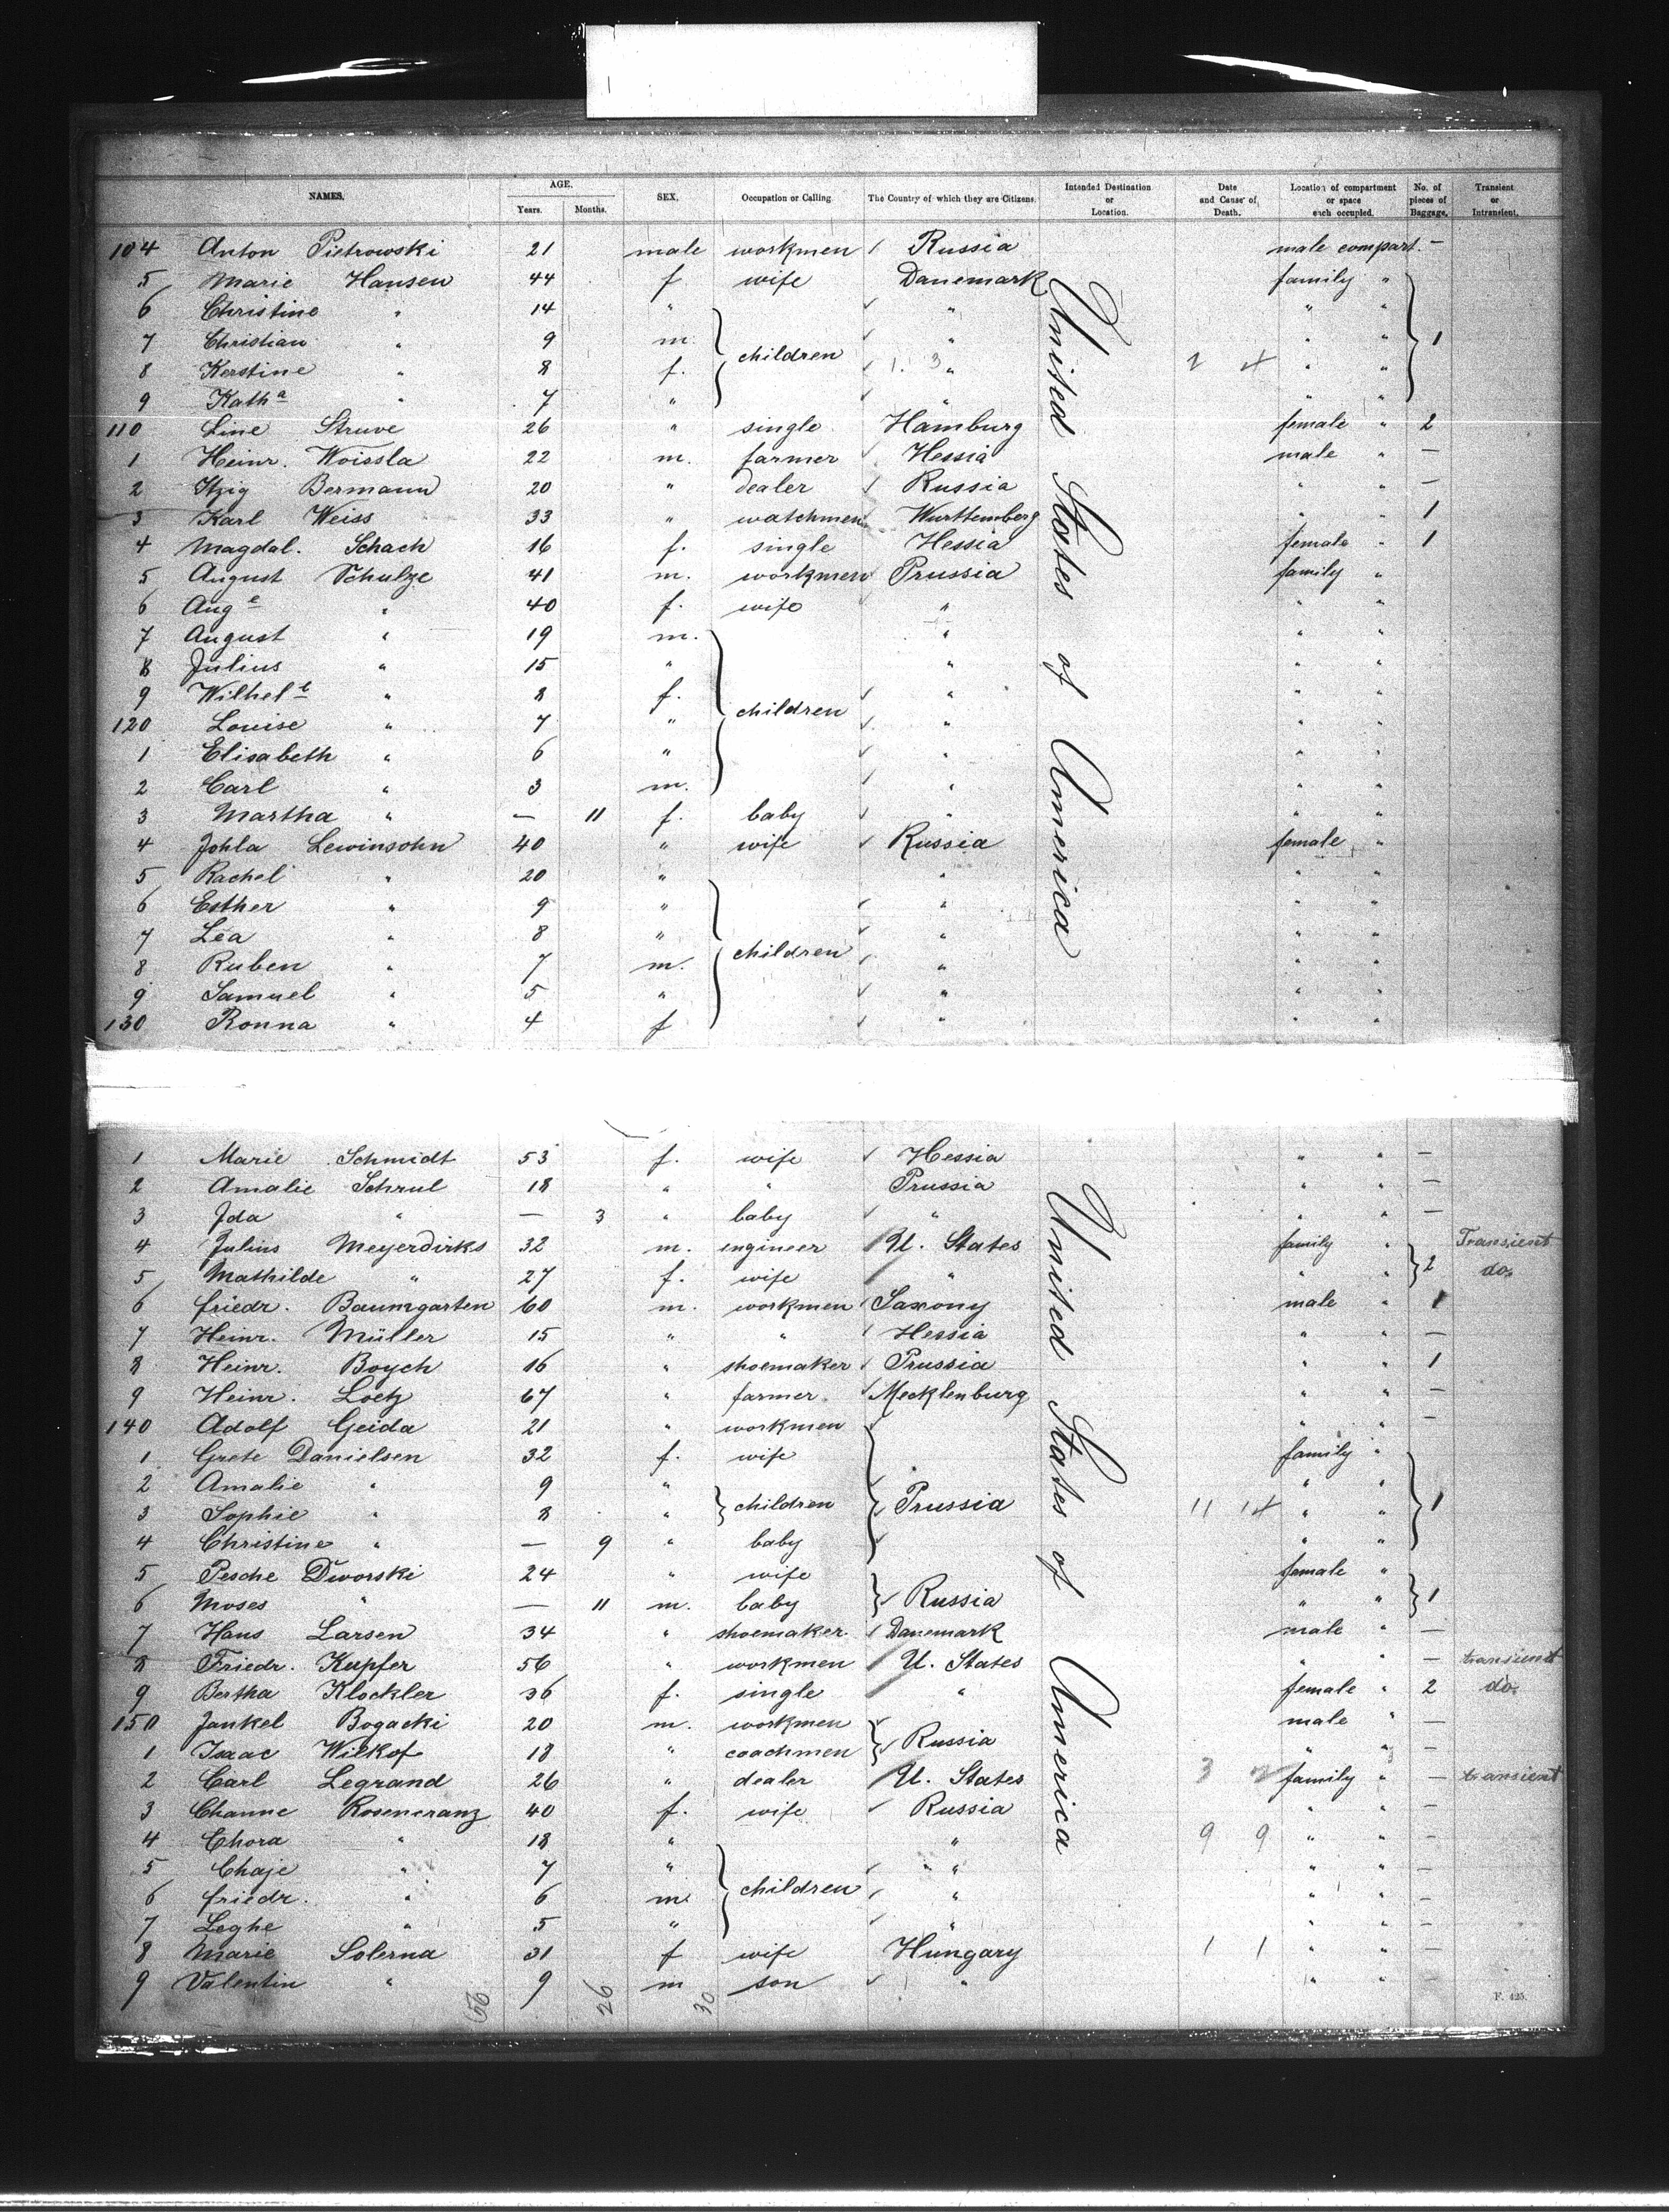 NAMES. AGE. Years. Months. SEX. Occupation or Calling. The Country of which they are Citizens. Intended Destination or Location. Date and Cause of Death. Location of compartment or space each occupied. No. of pieces of Baggage. Transient or Intransient.
104 Anton Pietrowski 21 male workmen Russia male compart. —
5 Marie Hansen 44 f wife Danemark family "
6 Christine " 14 " " " "
7 Christian " 9 m. " " " 1
8 Kerstine " 8 f. children 1. 3 " 2 4 " "
9 Katha " 7 " " " "
110 Line Struve 26 " single Hamburg female " 2
1 Heinr. Woissla 22 m. farmer Hessia male " —
2 Itzig Bermann 20 " dealer Russia " " —
3 Karl Weiss 33 " watchmen Wurttemberg " " 1
4 Magdal. Schach 16 f. single Hessia female " 1
5 August Schulze 41 m. workmen Prussia family "
6 Auge " 40 f. wife " " "
7 August " 19 m. " " "
8 Julius " 15 " " " "
9 Wilhel " 8 f. " " "
120 Louise " 7 " children " " "
1 Elisabeth " 6 " " " "
2 Carl " 3 m. " " "
3 Martha " — 11 f. baby " " "
4 Johla Lewinsohn 40 " wife Russia female "
5 Rachel " 20 " " " "
6 Esther " 9 " " " "
7 Lea " 8 " " " "
8 Ruben " 7 m. children " " "
9 Samuel " 5 " " " "
130 Ronna " 4 f " " "
United States of America
1 Marie Schmidt 53 f. wife Hessia " " —
2 Amalie Schrul 18 " " Prussia " " —
3 Ida " — 3 " baby " " " —
4 Julius Meyerdirks 32 m. engineer U. States family " Transient
5 Mathilde " 27 f. wife " " " 2 do.
6 Friedr. Baumgarten 60 m. workmen Saxony male " 1
7 Heinr. Müller 15 " " Hessia " " —
8 Heinr. Boych 16 " shoemaker Prussia " " 1
9 Heinr. Loetz 67 " farmer Mecklenburg " " —
140 Adolf Geida 21 " workmen " " —
1 Grete Danielsen 32 f. wife family "
2 Amalie " 9 " " "
3 Sophie " 8 " children Prussia 11 14 " " 1
4 Christine " — 9 " baby " "
5 Pesche Dworski 24 " wife female "
6 Moses " — 11 m. baby Russia " " 1
7 Hans Larsen 34 " shoemaker Danemark male " —
8 Friedr. Kupfer 56 " workmen U. States " " — transient
9 Bertha Klockler 36 f. single " female " 2 do.
150 Jankel Bogacki 20 m. workmen male " —
1 Isaac Wilkof 18 " coachmen Russia " " —
2 Carl Legrand 26 " dealer U. States 3 family " — transient
3 Channe Rosencranz 40 f. wife Russia " " —
4 Chora " 18 " " 9 9 " " —
5 Chaje " 7 " " " " —
6 Friedr. " 6 m children " " " —
7 Leghe " 5 " " " " —
8 Marie Solerna 31 f wife Hungary 1 1 " " —
9 Valentin " 9 m son " " " —
United States of America
56 26 30
F. 425.